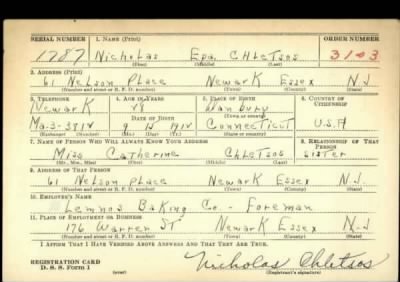 SERIAL NUMBER 1. NAME (Print) ORDER NUMBER
1787 Nicholas Epa. Chletsos 3103
(First) (Middle) (Last)
2. ADDRESS (Print)
61 Nelson Place Newark Essex N.J
(Number and street or R. F. D. number) (Town) (County) (State)
3. TELEPHONE 4. AGE IN YEARS 5. PLACE OF BIRTH 6. COUNTRY OF CITIZENSHIP
Newark Danbury
DATE OF BIRTH (Town or county)
Ma-3-3914 9 15 1914 Connecticut U.S.A
7. NAME OF PERSON WHO WILL ALWAYS KNOW YOUR ADDRESS 8. RELATIONSHIP OF THAT PERSON
Miss Catherine Chletsos Sister
(Mr., Mrs., Miss) (First) (Middle) (Last)
9. ADDRESS OF THAT PERSON
61 Nelson Place Newark Essex N.J.
(Number and street or R. F. D. number) (Town) (County) (State)
10. EMPLOYER'S NAME
Lemnos Baking Co - Foreman
11. PLACE OF EMPLOYMENT OR BUSINESS
176 Warren St Newark Essex N-J
(Number and street or R. F. D. number) (Town) (County) (State)
I AFFIRM THAT I HAVE VERIFIED ABOVE ANSWERS AND THAT THEY ARE TRUE.
REGISTRATION CARD Nicholas Chletsos
D. S. S. Form 1 (over) (Registrant's signature)